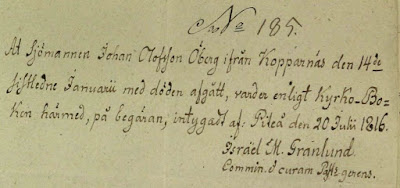 No 185.
At Sjömannen Johan Olofsson Öberg ifrån Kopparnäs den 14de
sistledne Januarii med döden afgått, varder enligt Kyrko-Bo-
ken härmed, på begäran, intygadt af; Piteå den 20 Julii 1816.
Israël M. Granlund.
Commin. & curam Past: gerens.